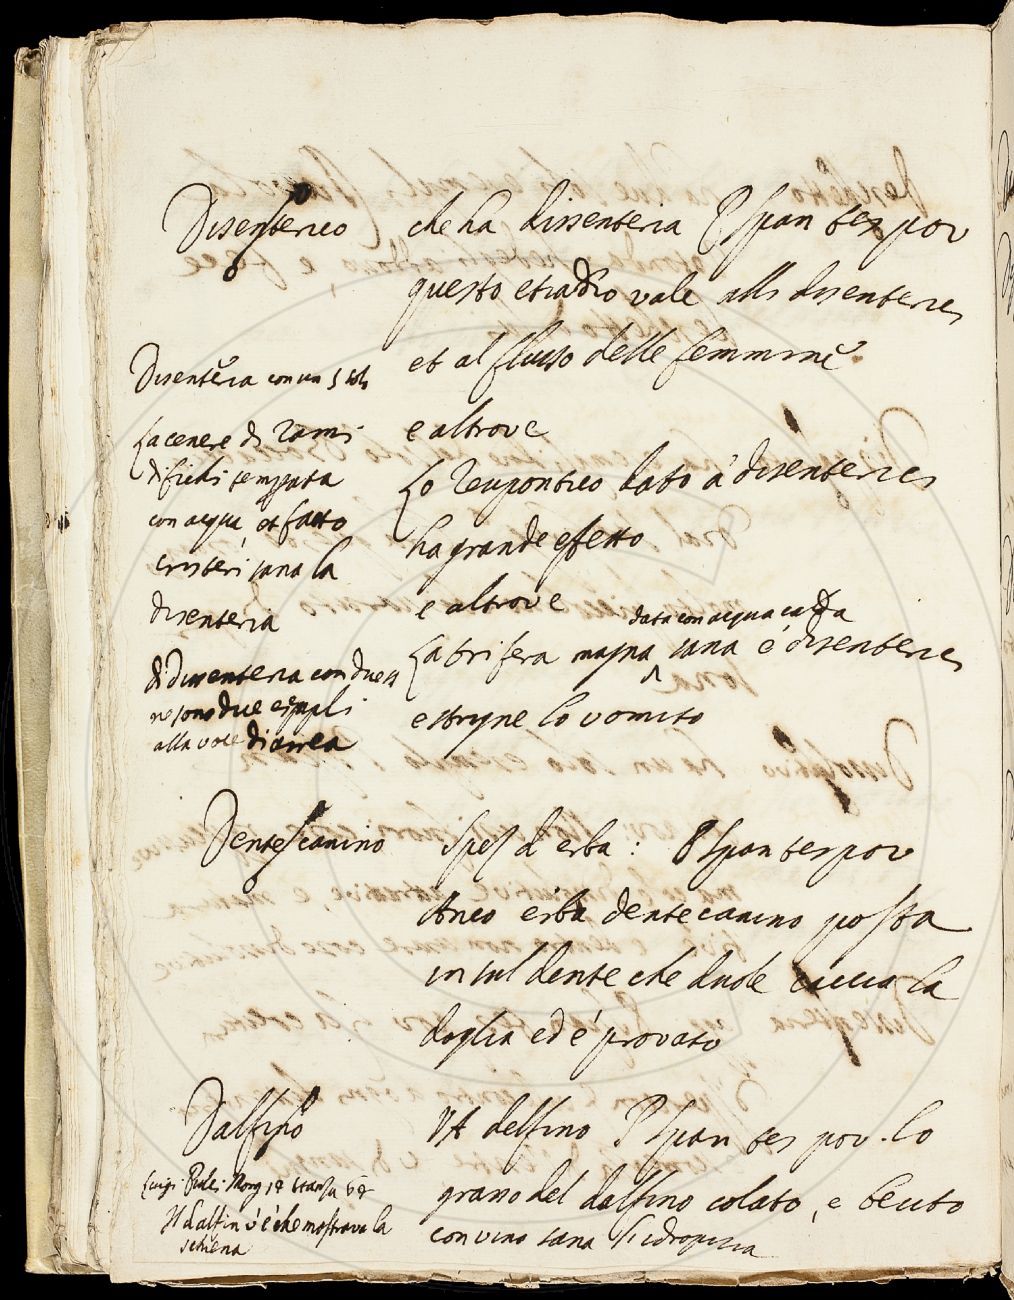 Disenterico che ha dissenteria P Span tes pov
questo etiandio vale alli disenterici
et al flusso delle femmine
e altrove
Lo Reupontico dato a disenterici
ha grande effetto
e altrove
data con acqua calda
La trifera magna sana e disenterici
e stryne lo vomito
Disenteria con un s solo
La cenere di rami
di fichi temperata
con acqua, et fatto
cristeri sana la
disenteria
di Dissenteria con due ss
ne sono due esempli
alla voce diarrea
Dentecanino Spez d erba: P Span tes pov
Anco erba dentecanino posta
in sul dente che duole caccia la
doglia ed é provato
Dalfino VA delfino P Span tes pov. lo
grasso del dalfino colato, e beuto
con vino sana l'idropisia
Luigi Pulci Morg 14 stanza 64
Il dalfin v'é che mostrava la
schiena